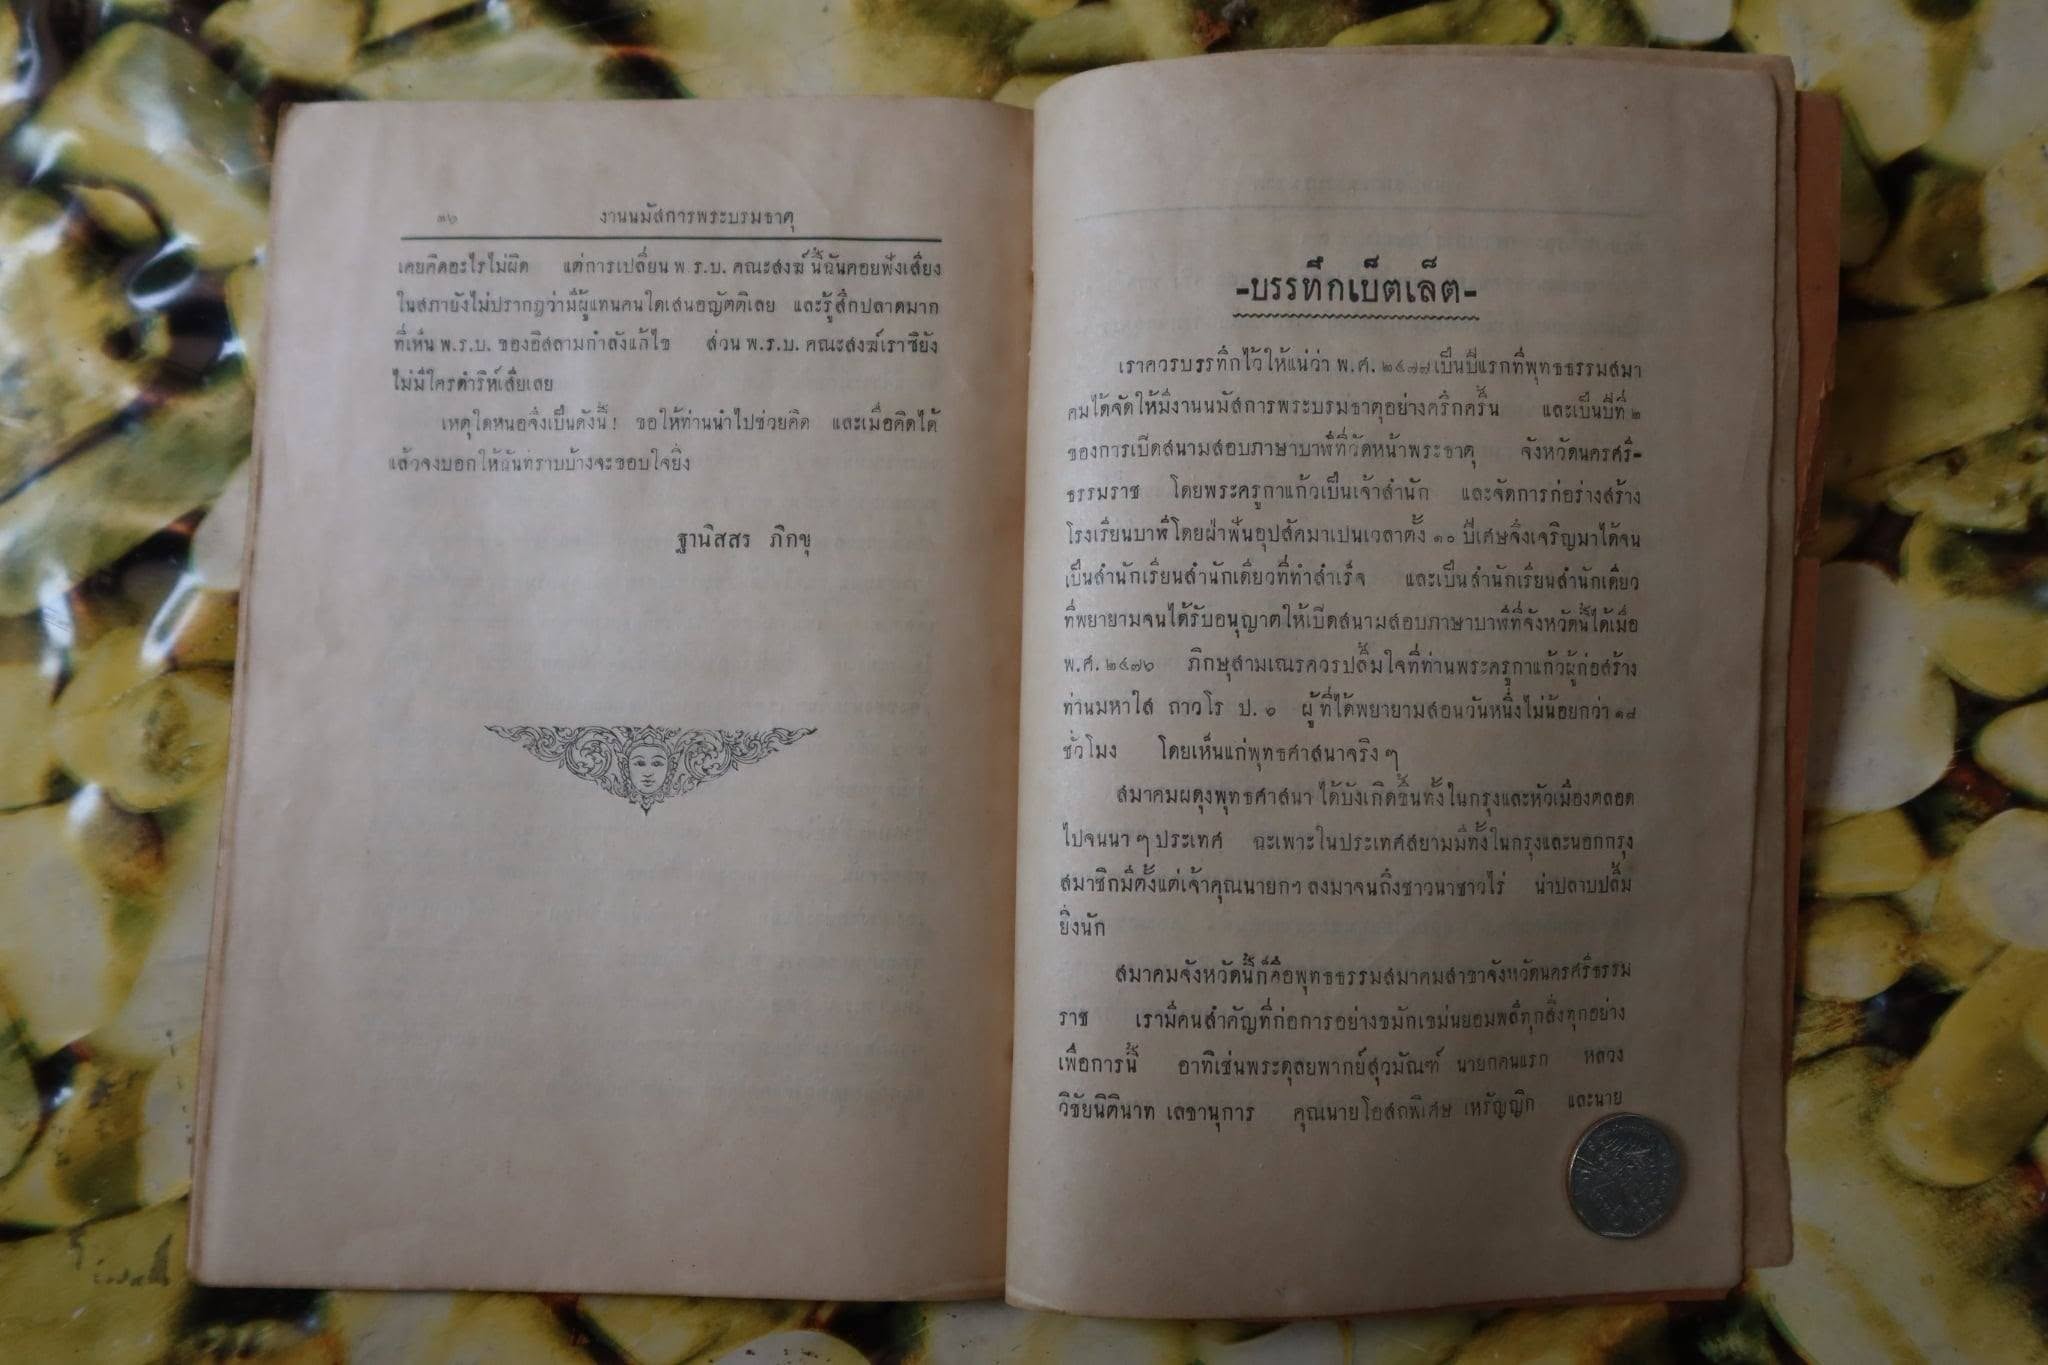 ๓๖ งานนมัสการพระบรมธาตุ
เคยคิดอะไรไม่ผิด แต่การเปลี่ยน พ.ร.บ. คณะสงฆ์ นี้ฉันคอยฟังเสียง
ในสภายังไม่ปรากฏว่ามีผู้แทนคนใดเสนอญัตติเลย และรู้สึกปลาดมาก
ที่เห็น พ.ร.บ. ของอิสลามกำลังแก้ไข ส่วน พ.ร.บ. คณะสงฆ์เราซิยัง
ไม่มีใครดำริห์เสียเลย
เหตุใดหนอจึงเป็นดังนี้! ขอให้ท่านนำไปช่วยคิด และเมื่อคิดได้
แล้วจงบอกให้ฉันทราบบ้างจะขอบใจยิ่ง
ฐานิสสร ภิกขุ
-บรรทึกเบ็ตเล็ต-
เราควรบรรทึกไว้ให้แน่ว่า พ.ศ. ๒๔๗๗ เป็นปีแรกที่พุทธธรรมสมา
คมได้จัดให้มีงานนมัสการพระบรมธาตุอย่างคริ้กครื้น และเป็นปีที่ ๒
ของการเปิดสนามสอบภาษาบาฬีที่วัดหน้าพระธาตุ จังหวัดนครศรี-
ธรรมราช โดยพระครูกาแก้วเป็นเจ้าสำนัก และจัดการก่อร่างสร้าง
โรงเรียนบาฬีโดยฝ่าฟันอุปสัคมาเปนเวลาตั้ง ๑๐ ปีเศษจึ่งเจริญมาได้จน
เป็นสำนักเรียนสำนักเดียวที่ทำสำเร็จ และเป็นสำนักเรียนสำนักเดียว
ที่พยายามจนได้รับอนุญาตให้เปิดสนามสอบภาษาบาฬีที่จังหวัดนี้ได้เมื่อ
พ.ศ. ๒๔๗๖ ภิกษุสามเณรควรปลื้มใจที่ท่านพระครูกาแก้วผู้ก่อสร้าง
ท่านมหาใส ถาวโร ป. ๖ ผู้ที่ได้พยายามสอนวันหนึ่งไม่น้อยกว่า ๑๘
ชั่วโมง โดยเห็นแก่พุทธศาสนาจริง ๆ
สมาคมผดุงพุทธศาสนา ได้บังเกิดขึ้นทั้งในกรุงและหัวเมืองตลอด
ไปจนนา ๆ ประเทศ ฉะเพาะในประเทศสยามมีทั้งในกรุงและนอกกรุง
สมาชิกมีตั้งแต่เจ้าคุณนายกฯ ลงมาจนถึงชาวนาชาวไร่ น่าปลาบปลื้ม
ยิ่งนัก
สมาคมจังหวัดนี้ก็คือพุทธธรรมสมาคมสาขาจังหวัดนครศรีธรรม
ราช เรามีคนสำคัญที่ก่อการอย่างขมักเขม่นยอมพลีทุกสิ่งทุกอย่าง
เพื่อการนี้ อาทิเช่นพระดุลยพากย์สุวมัณฑ์ นายกคนแรก หลวง
วิชัยนิตินาท เลขานุการ คุณนายโอสถพิเศษ เหรัญญิก และนาย